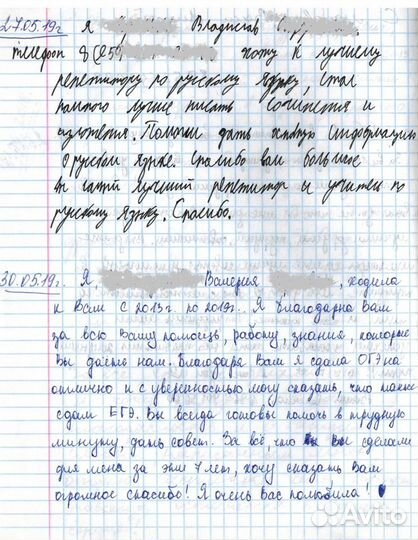 27.05.19г Я Владислав
телефон 8 (25 хожу к лучшему
репетитору по русскому языку, стал
намного лучше писать сочинения и
изложения. Помогли дать новую информацию
о русском языке. Спасибо вам большое
Вы самый лучший репетитор и учитель по
русскому языку. Спасибо.
30.05.19г. Я, Валерия , ходила
к Вам с 2013г. по 2019г. Я благодарна Вам
за всю Вашу помощь, работу, знания, которые
Вы даёте нам. Благодаря Вам я сдала ОГЭ на
отлично и с уверенностью могу сказать, что также
сдам ЕГЭ. Вы всегда готовы помочь в трудную
минуту, дать совет. За всё, что Вы сделали
для меня за эти 7 лет, хочу сказать Вам
огромное спасибо! Я очень Вас полюбила!
Avito